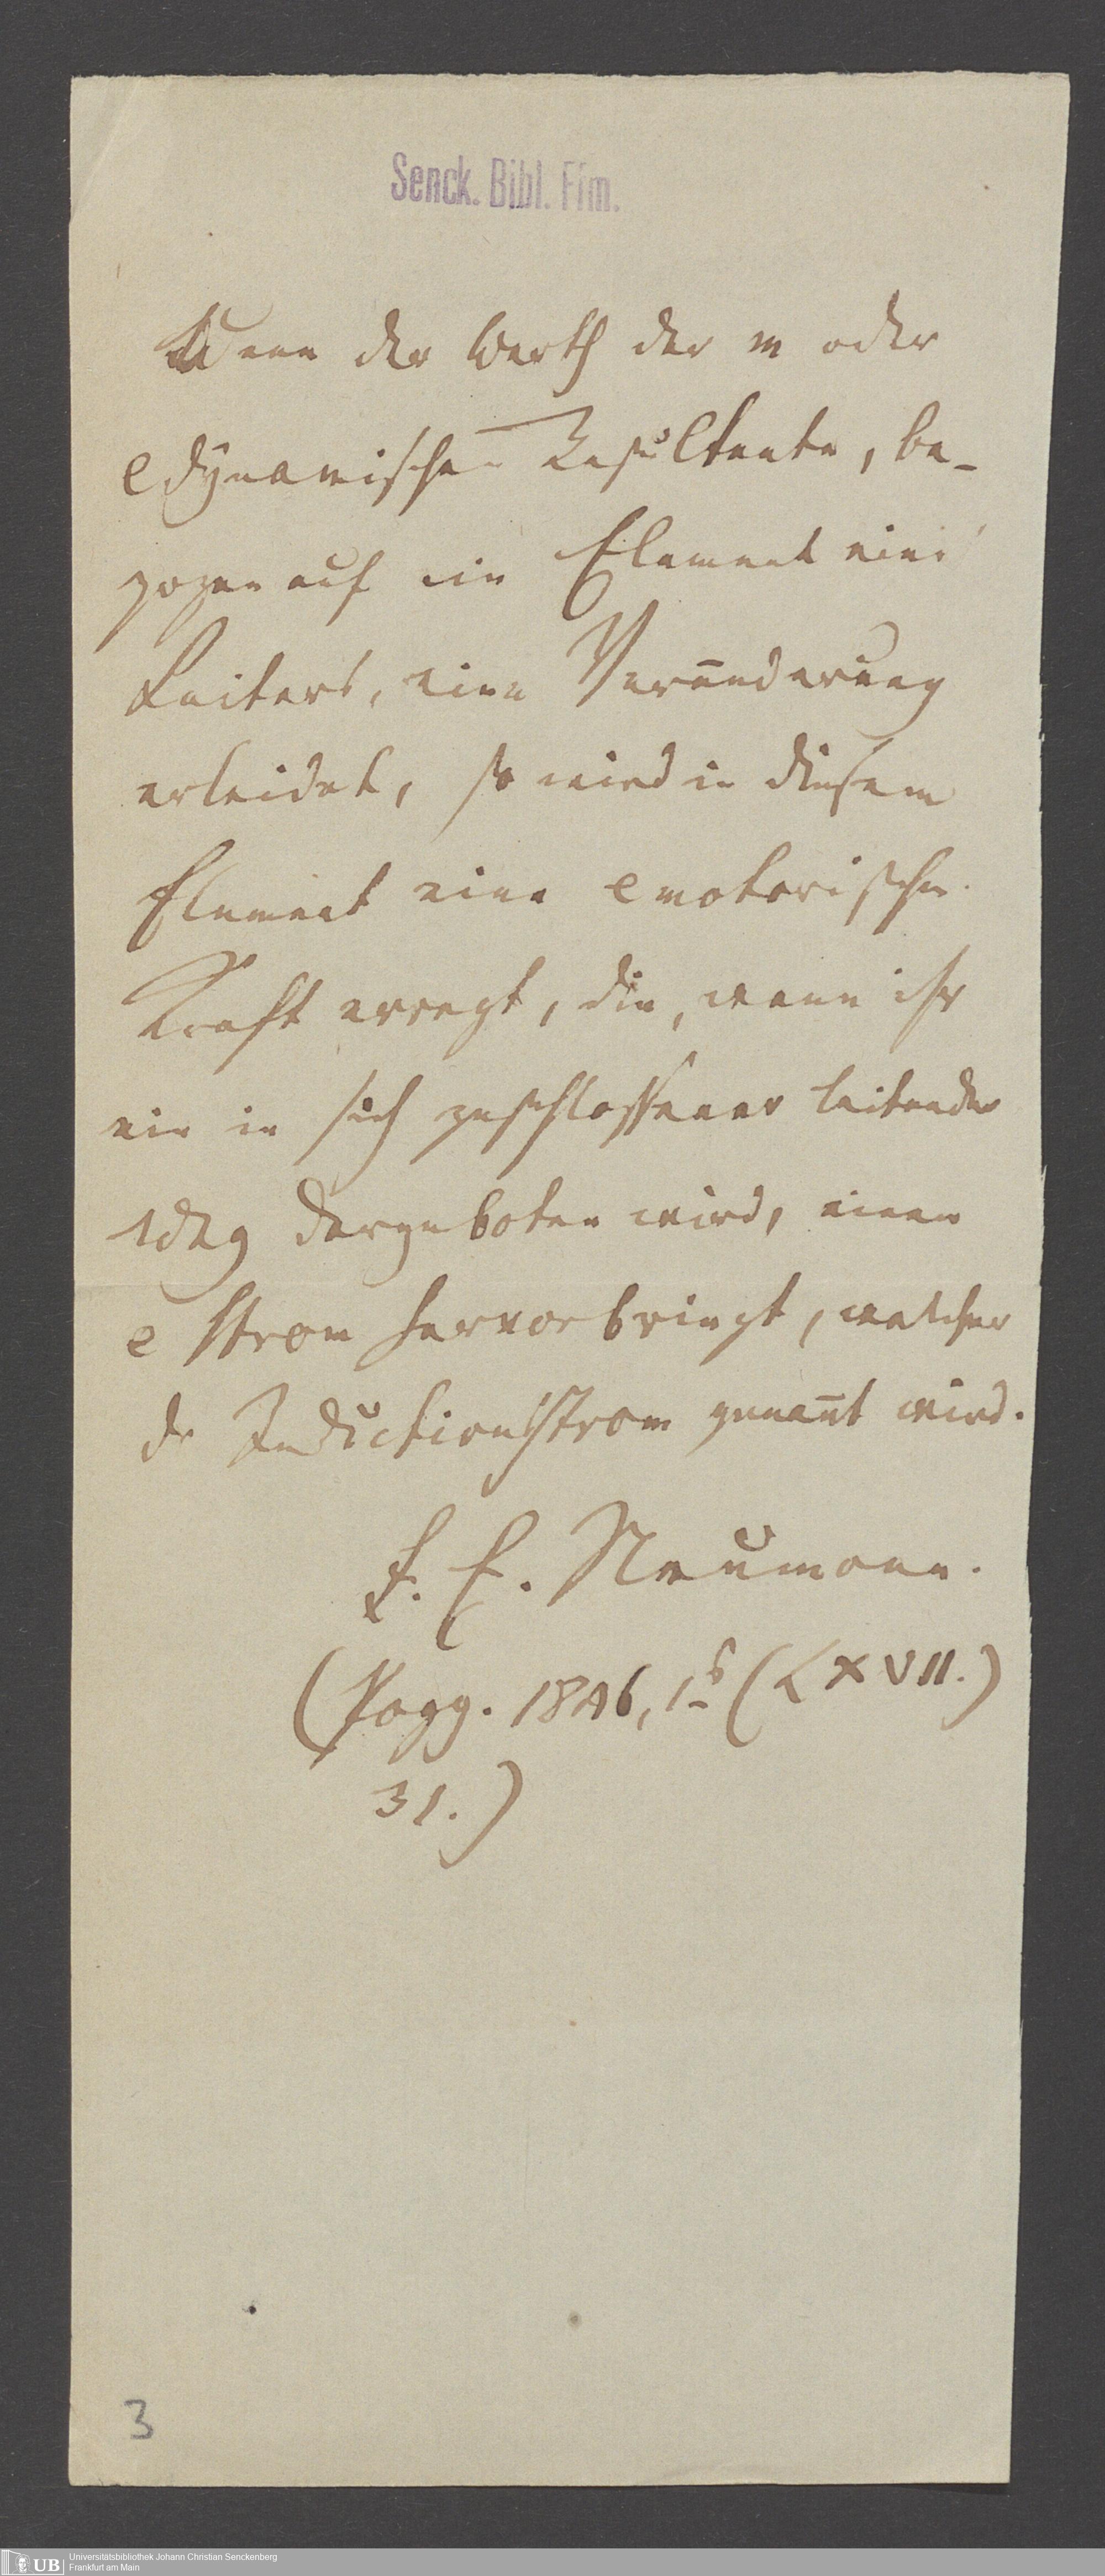 Senck. Bibl. Ffm.
Wenn der Werth der m oder
e dynamischen Resultante, be-
zogen auf ein Element eines
Leiters, eine Veränderung
erleidet, so wird in diesem
Element eine emotorische
Kraft erregt, die, wenn ihr
ein in sich geschlossener leitender
Weg dargeboten wird, einen
e Strom hervorbringt, welcher
der Inductionsstrom genannt wird.
F. E. Neumann.
(Pogg. 1846, 1. (LXVII.)
31.)
3
UB
Universitätsbibliothek Johann Christian Senckenberg
Frankfurt am Main